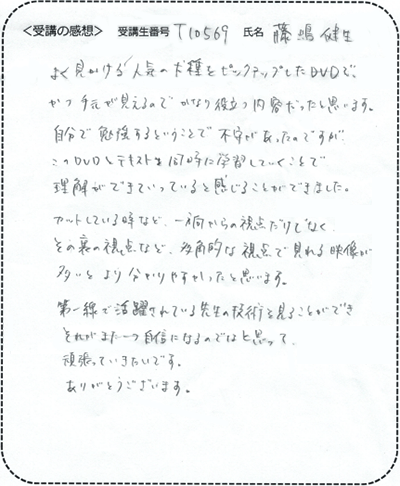 <受講の感想> 受講生番号 T10569 氏名 藤嶋 健生
よく見かける人気の犬種をピックアップしたDVDで、
かつ手元が見えるのでかなり役立つ内容だったと思います。
自分で勉強するということで不安があったのですが、
このDVDとテキストを同時に学習していくことで
理解ができていっていると感じることができました。
カットしている時など、一方向からの視点だけでなく、
その裏の視点など、多角的な視点で見れる映像が
多いとより分かりやすかったと思います。
第一線で活躍されている先生の技術を見ることができ
それがまた一つ自信になるのではと思って、
頑張っていきたいです。
ありがとうございます。